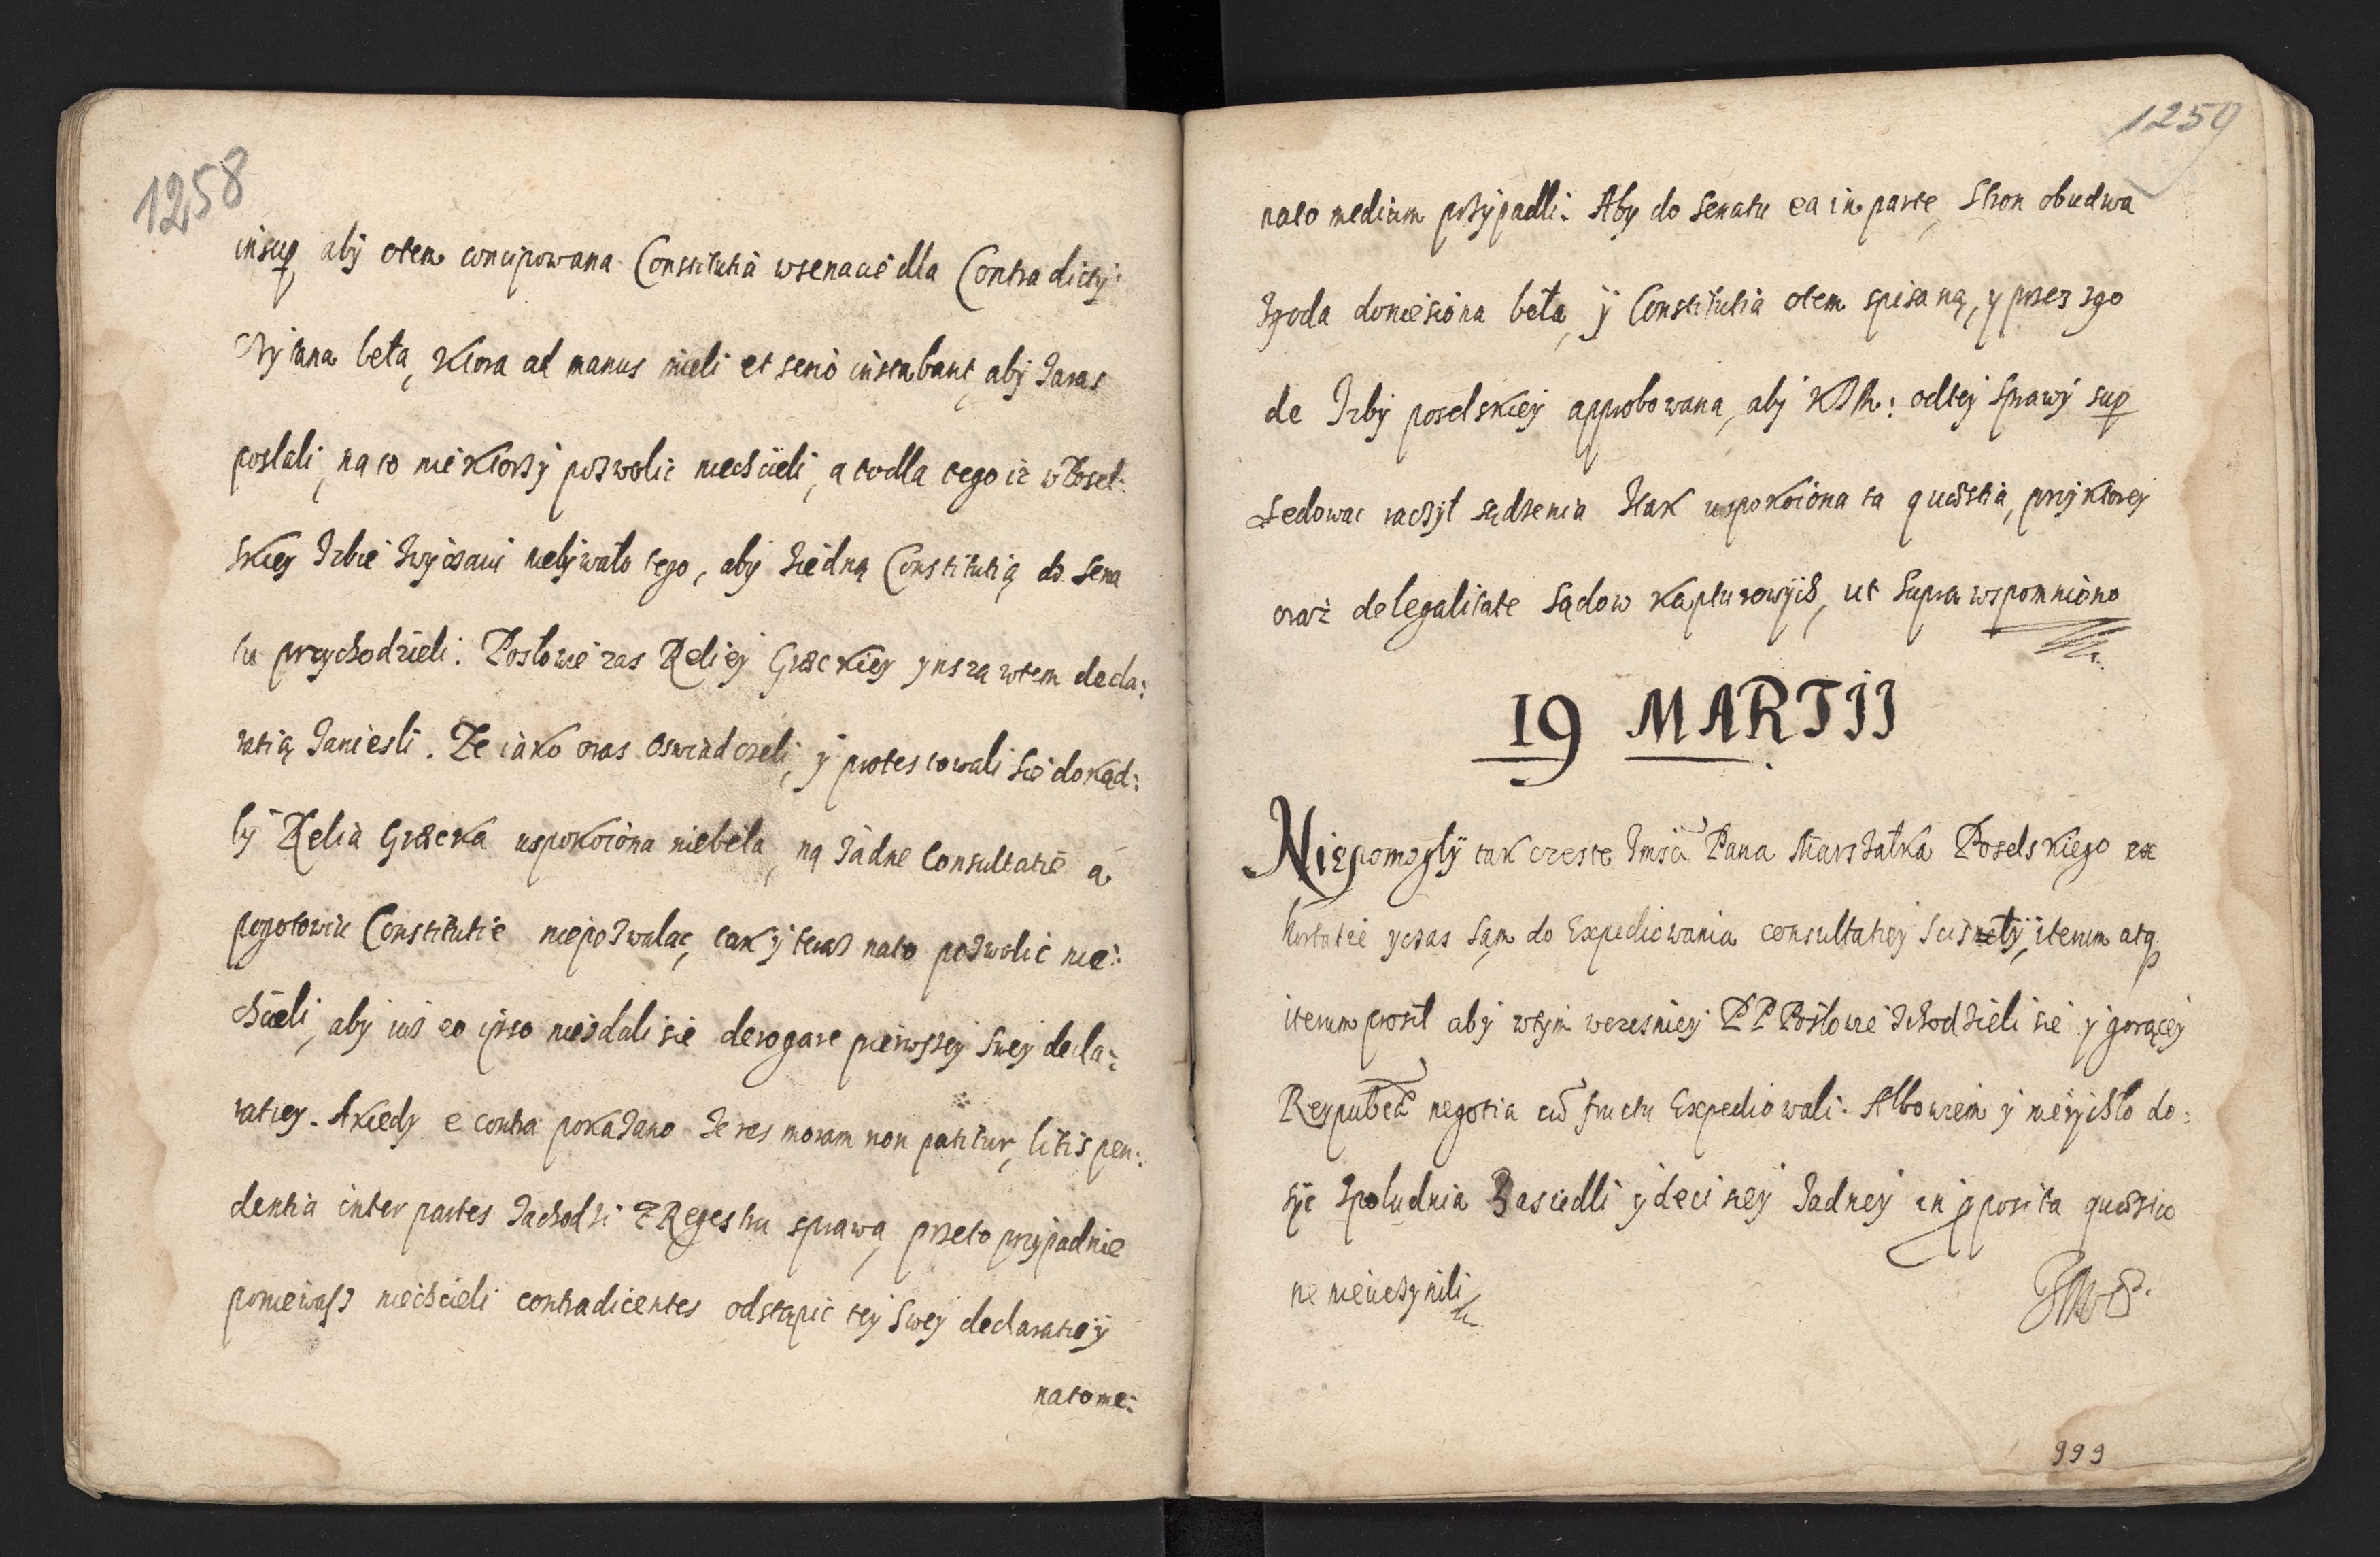 1258
insup, abÿ otem concipowana Constitutia wsenacie dla Contradictÿ:
czÿtana beła, Ktora ad manus mieli et serio instabant, abÿ zaraz
posłali, na co niektorzÿ pozwolic niechcieli, a to dla tego iz w Posel:
skieÿ Izbie zwÿczaiu niebÿwało tego, abÿ ziedną Constitutią do Sena
tu przychodzieli. Posłowie zas Reliey Græckiey ynsza wtem decla:
ratią zaniesli. Ze iako oraz oswiadczeli, ÿ protestowali sie dokąd:
bÿ Relia Græcka uspokoiona niebeła, ną zadne Consultatie a
pogotowiu Constitutie niepozwalać, tak ÿ teraz nato pozwolic nie:
chcieli, abÿ iuz eo ipso niezdali sie derogare pierwszeÿ sweÿ decla:
ratiey. A kiedy e contra pokazano ze res moram non patitur, litis pen:
dentia inter partes zachodzi z Regestru sprawą, przeto przypadnie
poniewasz niechcieli contradicentes odstąpic teÿ sweÿ declaratieÿ
natome:
1259
nato medium przÿpadli. Aby do Senatu ea in parte, stron obudwa
zgoda doniesiona beła, ÿ Constitutia otem spisaną, y przez zgo
de Izbÿ poselskieÿ approbowana, abÿ KJM: odteÿ sprawÿ sup
sedowac raczÿł sądzenia Itak uspokoiona ta quæstia, przÿktoreÿ
oraz delegalitate Sądow Kapturowÿch, ut supra wspomniono
19 MARTII
Niepomogłÿ tak czeste Imsci Pana Marszałka Poselskiego ex
hortatie yczas sąm do Expediowania consultatieÿ scisnełÿ, iterum atq
iterum prosił abÿ wtÿm wczesnieÿ PP Posłowie schodzieli sie y gorąceÿ
Reypublcæ negotia cū fructu Expediowali. Albowiem ÿ nieryichło do:
sÿc zpołudnia Zasiedli ÿ deciseÿ zadneÿ in pposita quæstio
ne nieuczÿnili
999